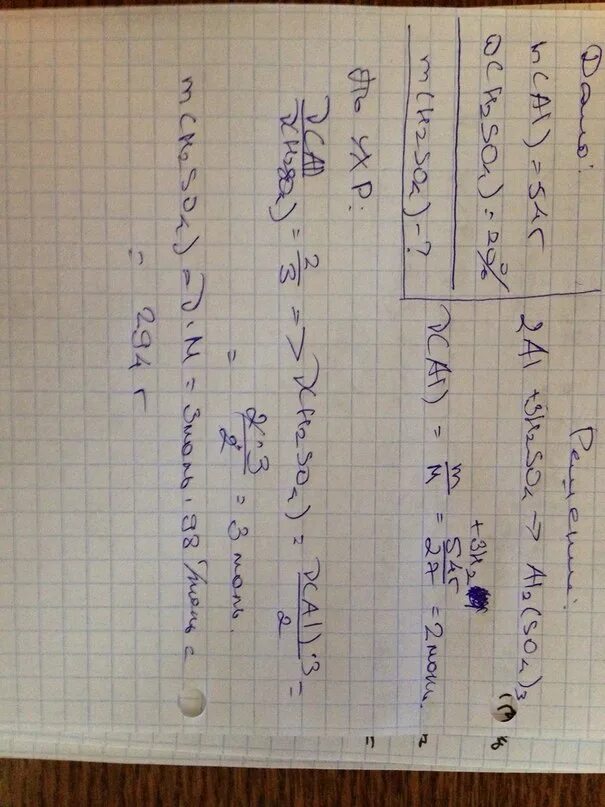 Дано:
m(Al) = 54г
ω(H2SO4) = 20%
m(H2SO4) - ?
Решение:
2Al + 3H2SO4 → Al2(SO4)3
+ 3H2
ν(Al) = m/M = 54г/27 = 2 моль.
По УХР:
ν(Al)/ν(H2SO4) = 2/3 => ν(H2SO4) = ν(Al)·3/2 =
= 2·3/2 = 3 моль.
m(H2SO4) = ν·M = 3моль·98 г/моль =
= 294 г